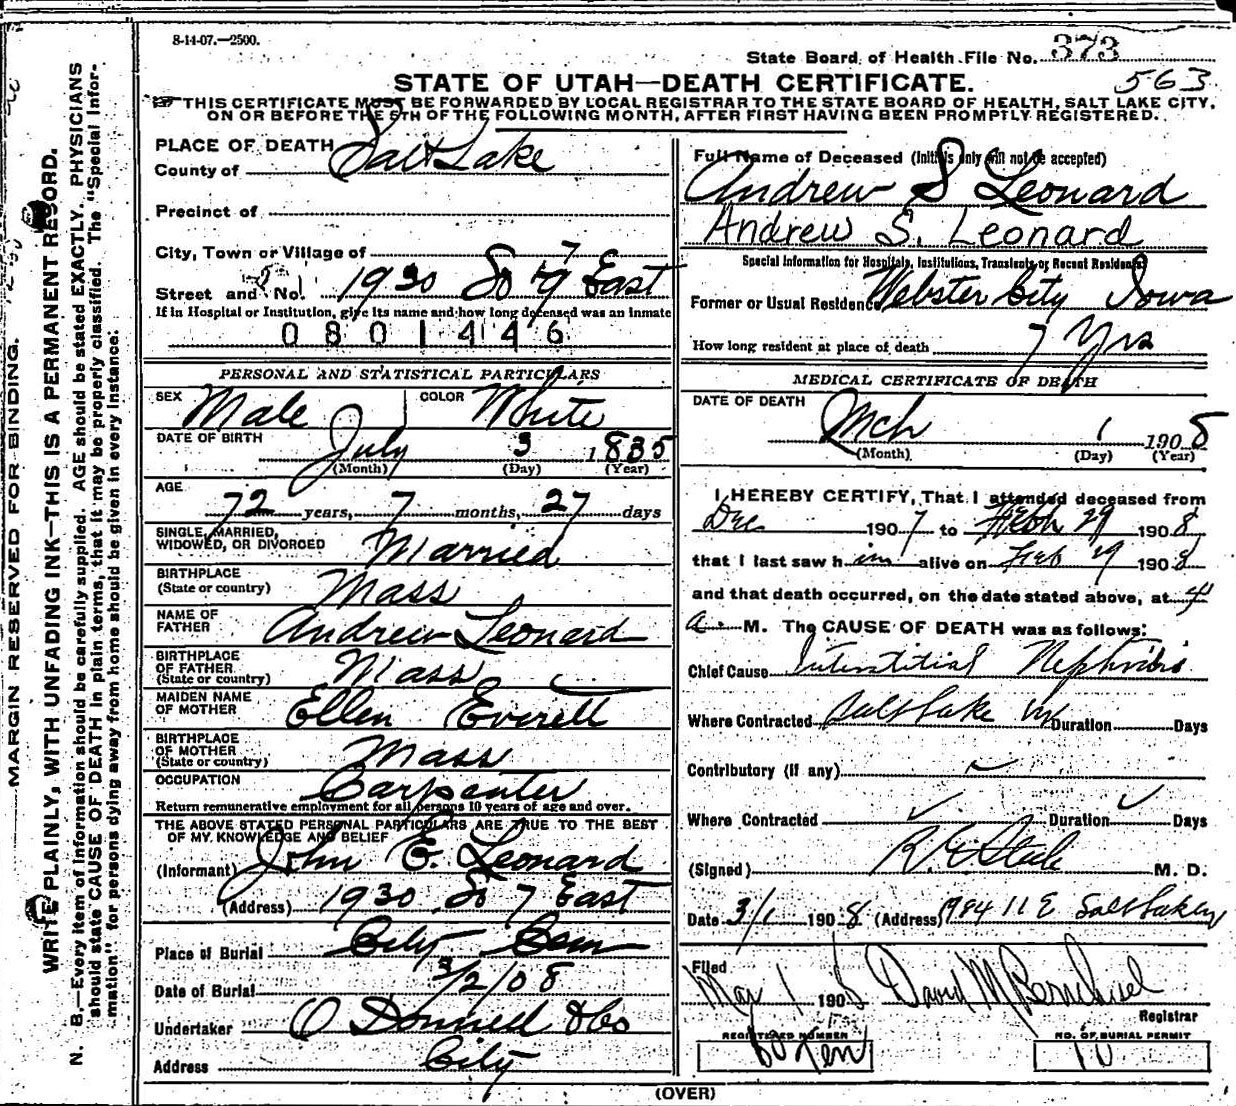 8-14-07.—2500.
State Board of Health File No. 373
563
STATE OF UTAH—DEATH CERTIFICATE.
THIS CERTIFICATE MUST BE FORWARDED BY LOCAL REGISTRAR TO THE STATE BOARD OF HEALTH, SALT LAKE CITY,
ON OR BEFORE THE 5TH OF THE FOLLOWING MONTH, AFTER FIRST HAVING BEEN PROMPTLY REGISTERED.
MARGIN RESERVED FOR BINDING.
WRITE PLAINLY, WITH UNFADING INK—THIS IS A PERMANENT RECORD.
N. B.—Every item of information should be carefully supplied. AGE should be stated EXACTLY. PHYSICIANS
should state CAUSE OF DEATH in plain terms, that it may be properly classified. The "Special Infor-
mation" for persons dying away from home should be given in every instance.
PLACE OF DEATH
County of Salt Lake
Precinct of
City, Town or Village of
Street and No. 1930 So 7 East
If in Hospital or Institution, give its name and how long deceased was an inmate
0801446
PERSONAL AND STATISTICAL PARTICULARS
SEX Male COLOR White
DATE OF BIRTH July 3 1835
(Month) (Day) (Year)
AGE
72 years, 7 months, 27 days
SINGLE, MARRIED,
WIDOWED, OR DIVORCED Married
BIRTHPLACE
(State or country) Mass
NAME OF
FATHER Andrew Leonard
BIRTHPLACE
OF FATHER
(State or country) Mass
MAIDEN NAME
OF MOTHER Ellen Everett
BIRTHPLACE
OF MOTHER
(State or country) Mass
OCCUPATION Carpenter
Return remunerative employment for all persons 10 years of age and over.
THE ABOVE STATED PERSONAL PARTICULARS ARE TRUE TO THE BEST
OF MY KNOWLEDGE AND BELIEF
(Informant) John E. Leonard
(Address) 1930 So 7 East
Place of Burial City Cem
Date of Burial 3/2/08
Undertaker O Donnell &Co
Address City
Full Name of Deceased (Initials only will not be accepted)
Andrew S Leonard
Andrew S. Leonard
Special Information for Hospitals, Institutions, Transients or Recent Residents
Former or Usual Residence Webster City Iowa
How long resident at place of death 7 Yrs
MEDICAL CERTIFICATE OF DEATH
DATE OF DEATH
Mch 1 1908
(Month) (Day) (Year)
I HEREBY CERTIFY, That I attended deceased from
Dec 1907 to Feb 29 1908
that I last saw him alive on Feb 29 1908
and that death occurred, on the date stated above, at 4
a. M. The CAUSE OF DEATH was as follows:
Chief Cause Interstitial Nephritis
Where Contracted Salt Lake Duration Days
Contributory (if any)
Where Contracted Duration Days
(Signed) M. D.
Date 3/1 1908 (Address) 984 11 E Salt Lake
Filed
Mar 1 1908 David M Bernhisel
Registrar
REGISTERED NUMBER
NO. OF BURIAL PERMIT
10
(OVER)